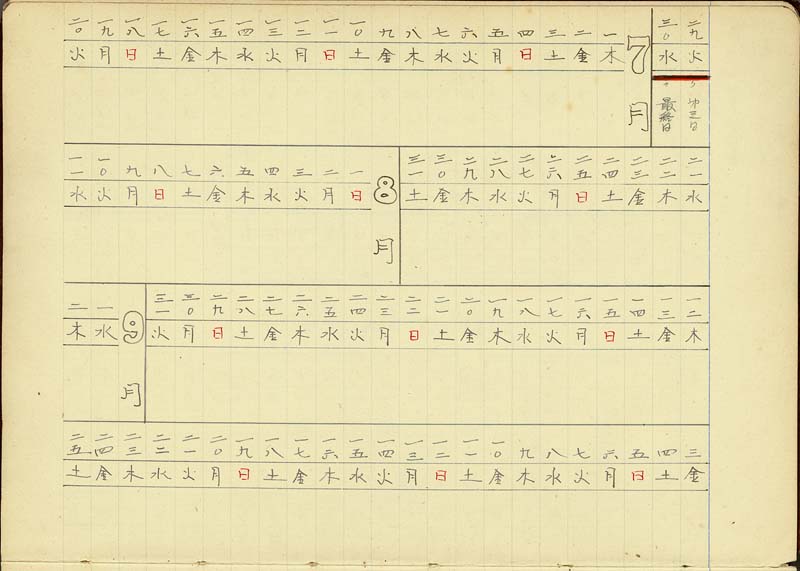 二九 三〇
火 水
最終日
7月
一 二 三 四 五 六 七 八 九 一〇 一一 一二 一三 一四 一五 一六 一七 一八 一九 二〇
木 金 土 日 月 火 水 木 金 土 日 月 火 水 木 金 土 日 月 火
二一 二二 二三 二四 二五 二六 二七 二八 二九 三〇 三一
水 木 金 土 日 月 火 水 木 金 土
8月
一 二 三 四 五 六 七 八 九 一〇 一一
日 月 火 水 木 金 土 日 月 火 水
一二 一三 一四 一五 一六 一七 一八 一九 二〇 二一 二二 二三 二四 二五 二六 二七 二八 二九 三〇 三一
木 金 土 日 月 火 水 木 金 土 日 月 火 水 木 金 土 日 月 火
9月
一 二
水 木
三 四 五 六 七 八 九 一〇 一一 一二 一三 一四 一五 一六 一七 一八 一九 二〇 二一 二二 二三 二四 二五
金 土 日 月 火 水 木 金 土 日 月 火 水 木 金 土 日 月 火 水 木 金 土